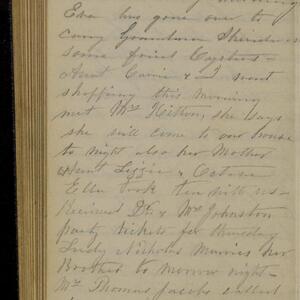 Eva has gone over to
carry Grandma
some fried Oysters -
Aunt Carrie & I went
shopping this morning
met Mrs Hilton, she says
she will come to our house
to night also her Mother
Aunt Lizzie &
Ella took tea with us -
Received Dr. & Mrs Johnston
party tickets for Thursday
Lady Nicholas Marries her
Brother to morrow night -
Mrs Thomas Jacobs called